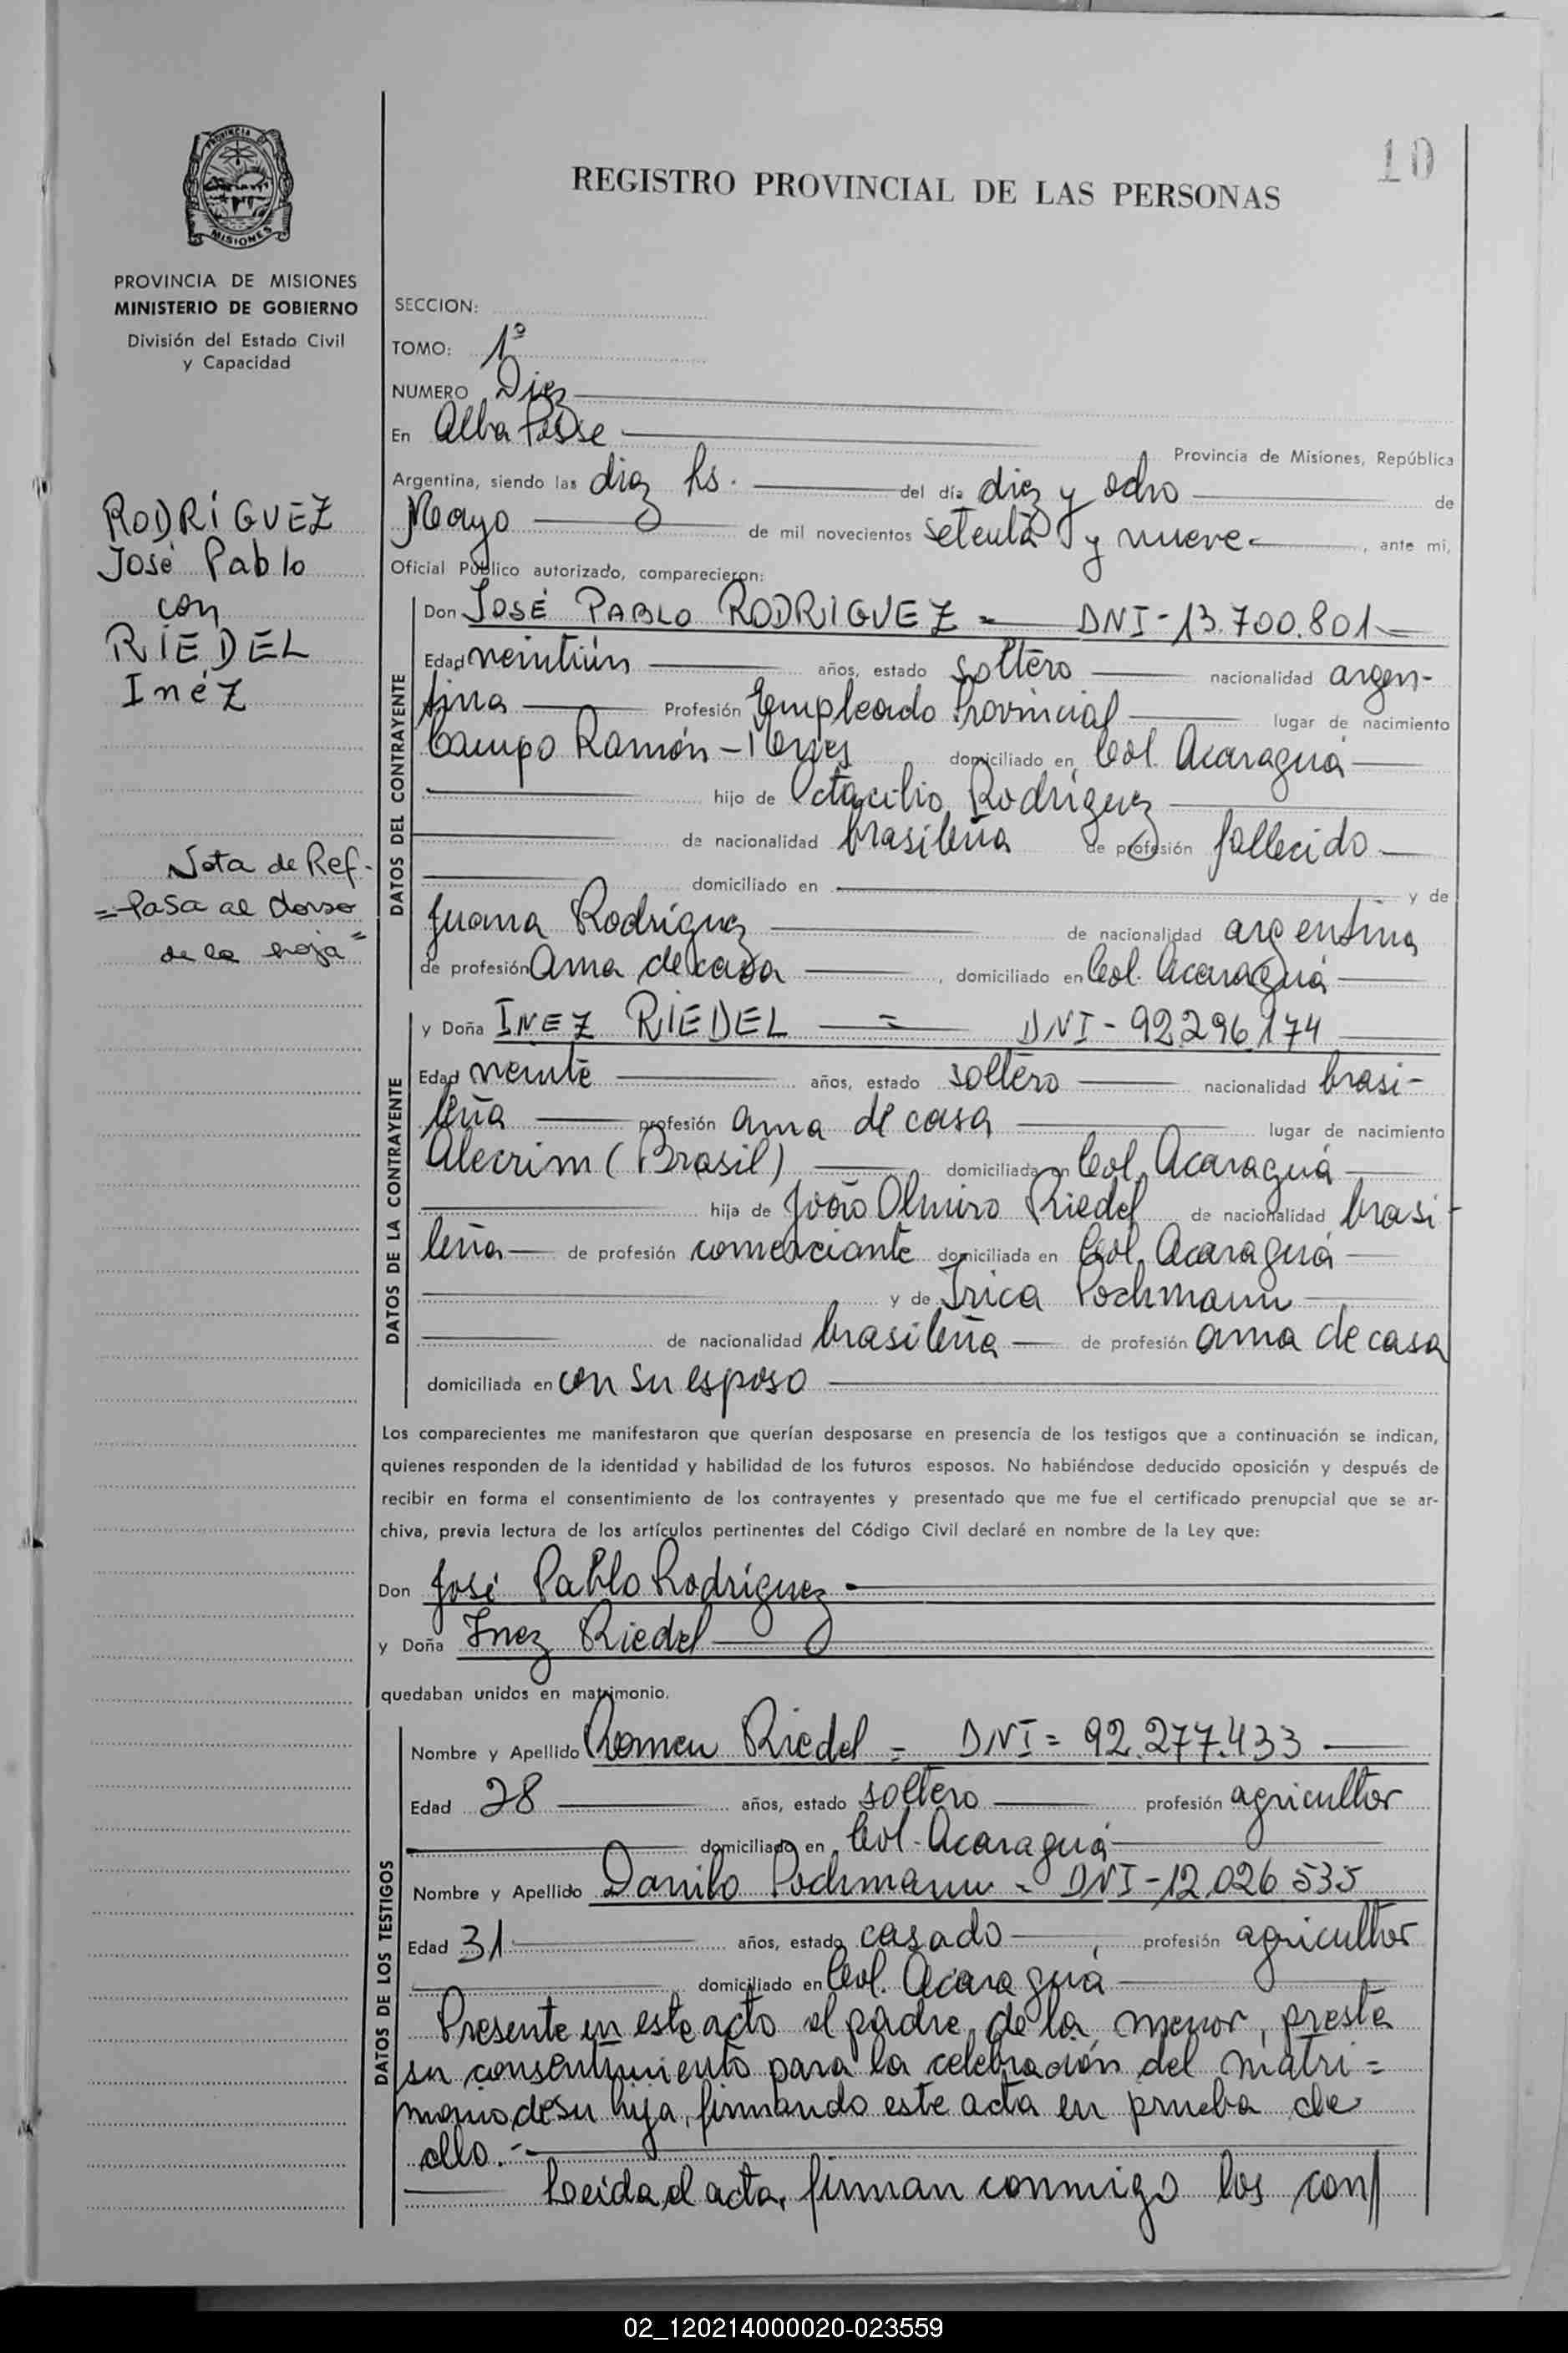 10
REGISTRO PROVINCIAL DE LAS PERSONAS
PROVINCIA DE MISIONES
MINISTERIO DE GOBIERNO
División del Estado Civil
y Capacidad
RODRÍGUEZ
José Pablo
con
RIEDEL
Inéz
Nota de Ref-
=Pasa al dorso
de la hoja=
SECCION:
TOMO: 1º
NUMERO Diez
En Alba Posse
Provincia de Misiones, República
Argentina, siendo las diez hs. del día diez y ocho de
Mayo de mil novecientos setenta y nueve , ante mi,
Oficial Público autorizado, comparecieron:
DATOS DEL CONTRAYENTE
Don JOSÉ PABLO RODRIGUEZ = DNI-13.700.801
Edad veintiún años, estado soltero nacionalidad argen-
tina Profesión Empleado Provincial lugar de nacimiento
Campo Ramón - Mnes domiciliado en Col. Acaraguá
hijo de Octacilio Rodríguez
de nacionalidad brasileña de profesión fallecido
domiciliado en y de
Juana Rodríguez de nacionalidad argentina
de profesión Ama de casa , domiciliado en Col. Acaraguá
DATOS DE LA CONTRAYENTE
y Doña INEZ RIEDEL = DNI-92.296.174
Edad veinte años, estado soltero nacionalidad brasi-
leña profesión ama de casa lugar de nacimiento
Alecrim (Brasil) domiciliada en Col. Acaraguá
hija de João Olmiro Riedel de nacionalidad brasi-
leña de profesión comerciante domiciliada en Col. Acaraguá
y de Irica Pochmann
de nacionalidad brasileña de profesión ama de casa
domiciliada en con su esposo
Los comparecientes me manifestaron que querían desposarse en presencia de los testigos que a continuación se indican,
quienes responden de la identidad y habilidad de los futuros esposos. No habiéndose deducido oposición y después de
recibir en forma el consentimiento de los contrayentes y presentado que me fue el certificado prenupcial que se ar-
chiva, previa lectura de los artículos pertinentes del Código Civil declaré en nombre de la Ley que:
Don José Pablo Rodríguez
y Doña Inez Riedel
quedaban unidos en matrimonio.
DATOS DE LOS TESTIGOS
Nombre y Apellido Romeu Riedel = DNI= 92.277.433
Edad 28 años, estado soltero profesión agricultor
domiciliado en Col. Acaraguá
Nombre y Apellido Danilo Pochmann = DNI-12.026.535
Edad 31 años, estado casado , profesión agricultor
domiciliado en Col. Acaraguá
Presente en este acto el padre de la menor, presta
su consentimiento para la celebración del matri=
monio de su hija, firmando este acta en prueba de
ello.-
Leida el acta, firman conmigo los con//
02_120214000020-023559